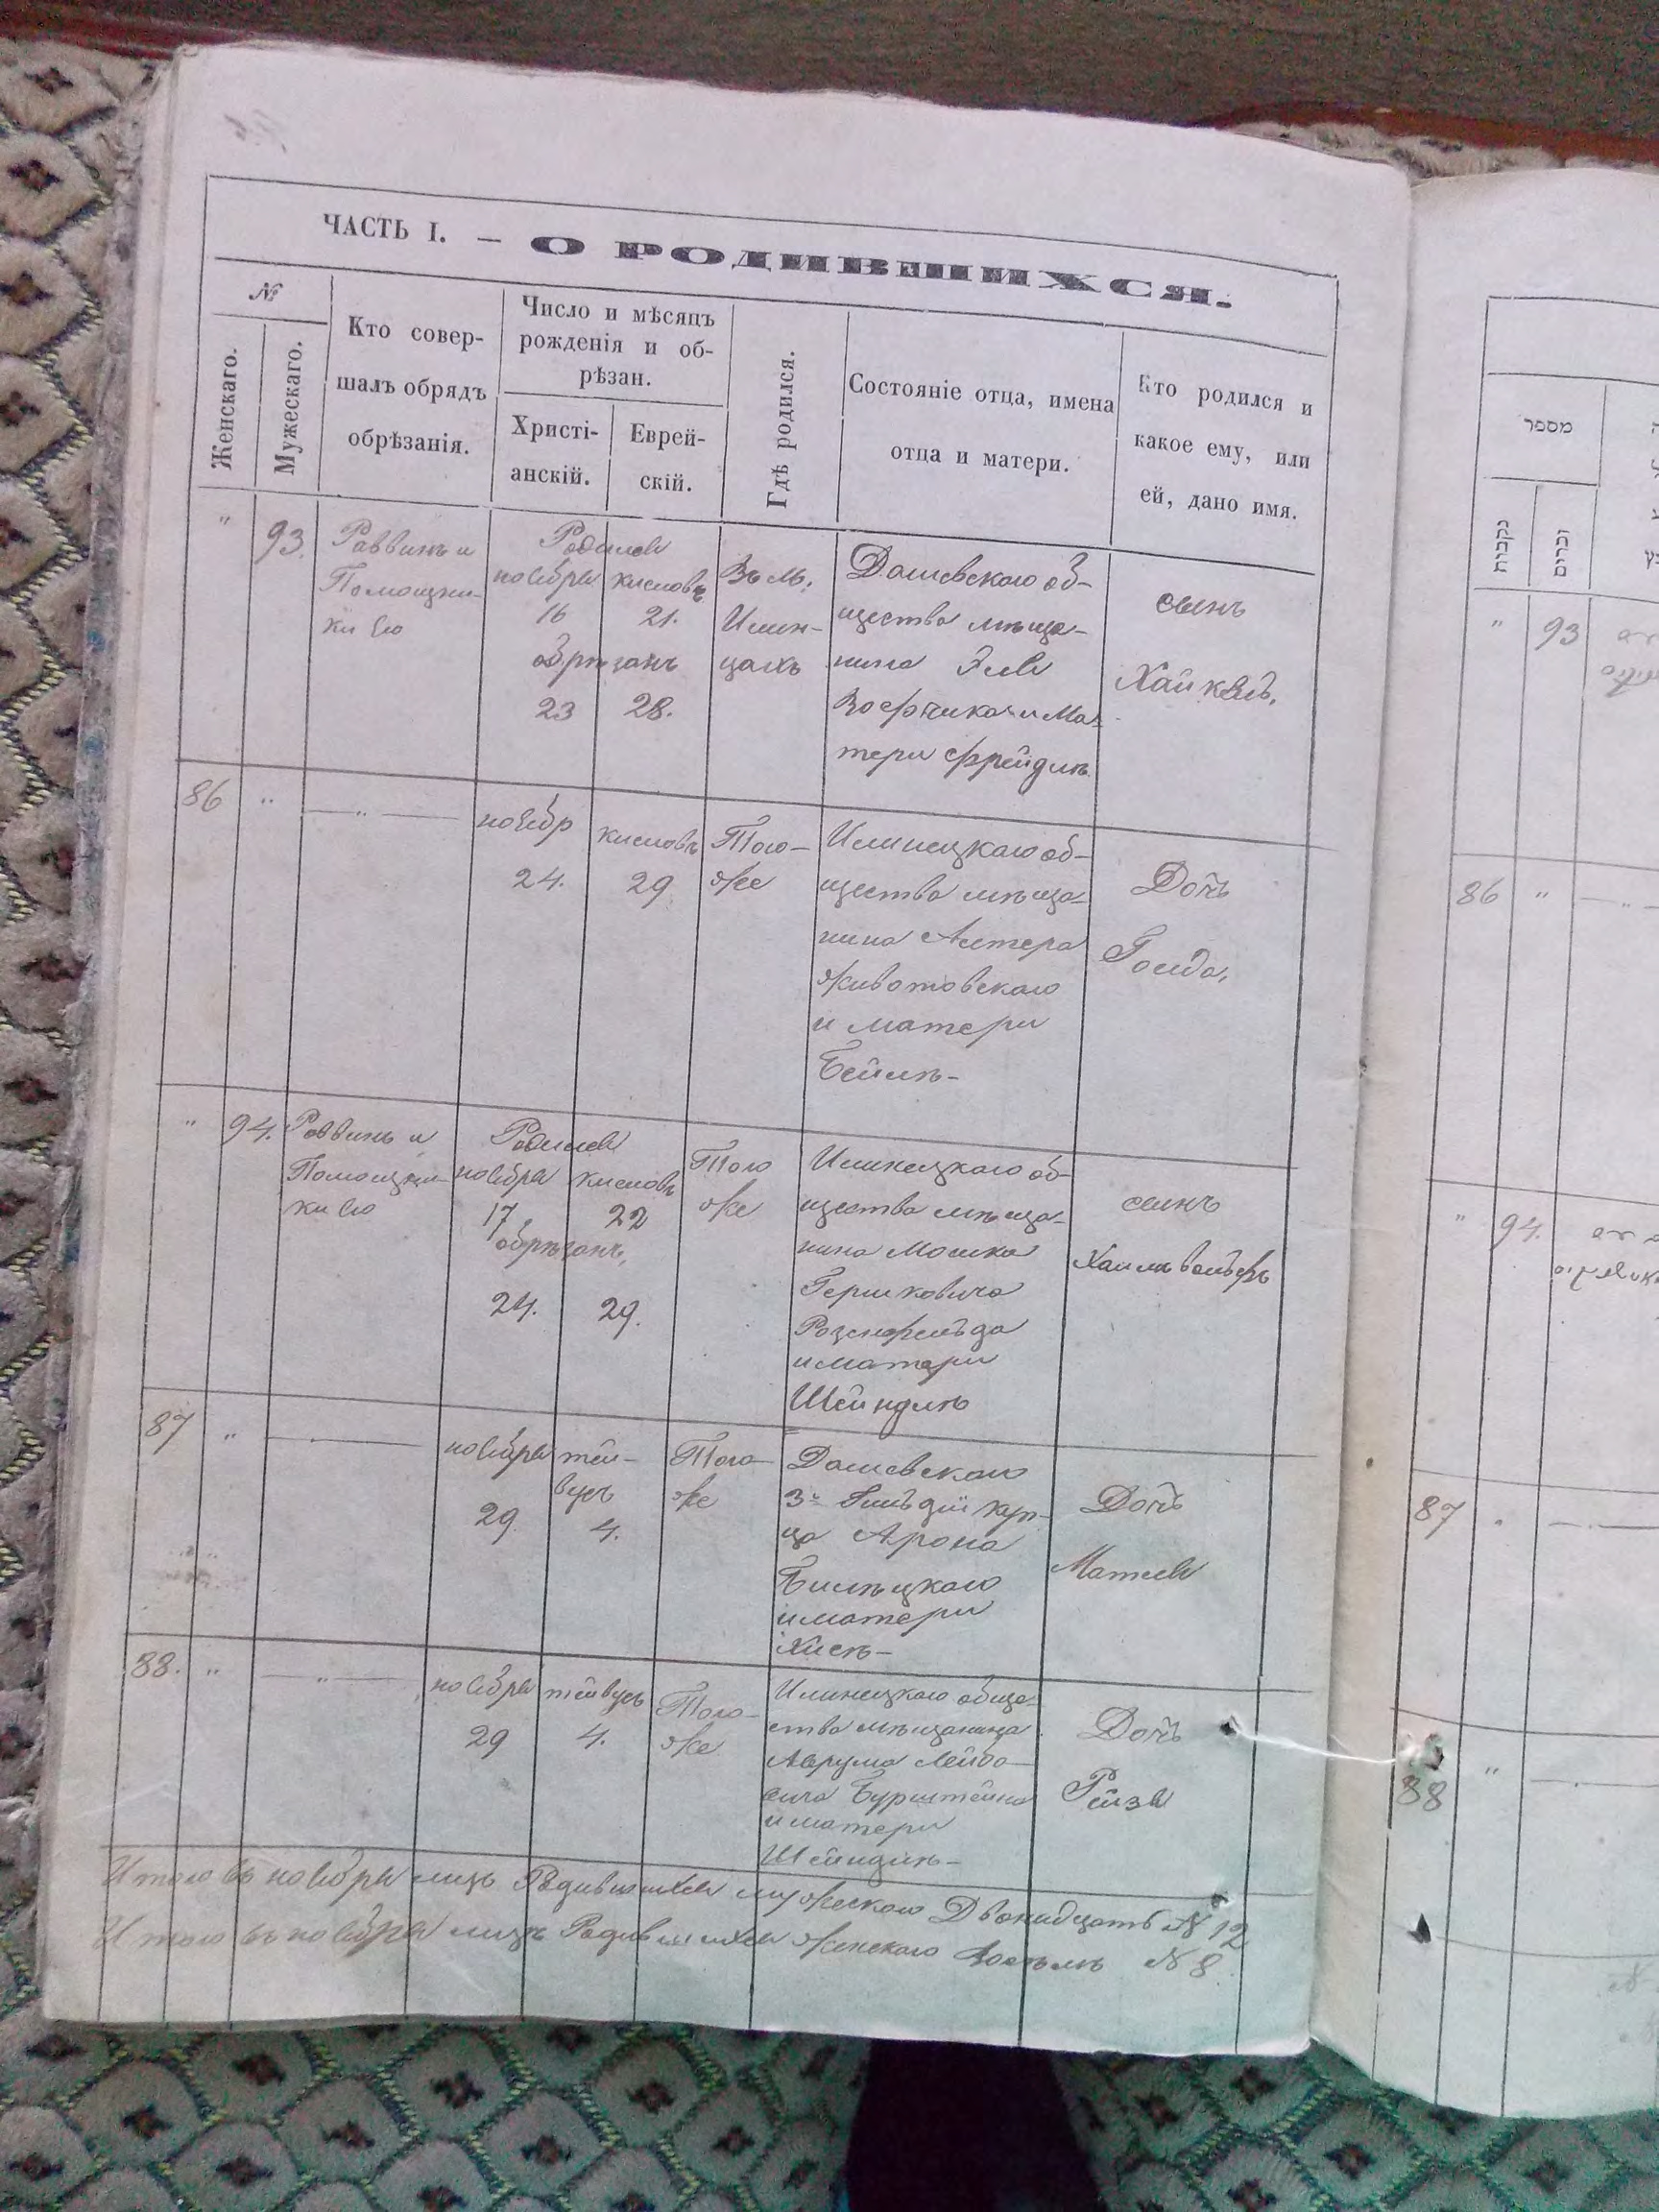 ЧАСТЬ I. — О РОДИВШИХСЯ.
№
Женскаго.
Мужескаго.
Кто совер-
шалъ обрядъ
обрѣзанія.
Число и мѣсяцъ
рожденія и об-
рѣзан.
Христі-
анскій.
Еврей-
скій.
Гдѣ родился.
Состояніе отца, имена
отца и матери.
Кто родился и
какое ему, или
ей, дано имя.
" 93.
Раввинъ и
Помощни-
ки его
Родился
ноября кисловъ
16 21.
обрѣзанъ
23 28.
Въ м.
Илин-
цахъ
Дашевскаго об-
щества мѣща-
нина
и Ма-
тери Фрейдлѣ
сынъ
Хайкель.
86 "
— " —
ноябр кисловъ
24. 29
Того-
же
Илинецкаго об-
щества мѣща-
нина Алтера
Животовскаго
и матери
Бейлѣ-
Дочь
Голда.
" 94.
Раввинъ и
Помощни-
ки его
Родился
ноября кисловъ
17 22
обрѣзанъ,
24. 29.
Того
же
Илинецкаго об-
щества мѣща-
нина Мошка
Гершковича
Розенфельда
и матери
Шейндлѣ
сынъ
Хаимъ Вольфъ
87 "
ноября тей-
вусъ
29 4.
Того-
же
Дашевскаго
3й Гильдіи куп-
ца Арона
Билѣцкаго
и матери
Хисѣ-
Дочь
Матля
88. "
— " —
ноября тейвусъ
29 4.
Того-
же
Илинецкаго обще-
ства мѣщанина
Аврума Лейбо-
вича Бурштейна
и матери
Шейндлѣ-
Дочь
Рейзя
Итого въ ноябрѣ мцѣ Родившихся мужескаго Двѣнадцать № 12
Итого въ ноябрѣ мцѣ Родившихся женскаго Восемъ № 8.
מספר
נקבות
זכרים
" 93
86 "
" 94.
87
88 "